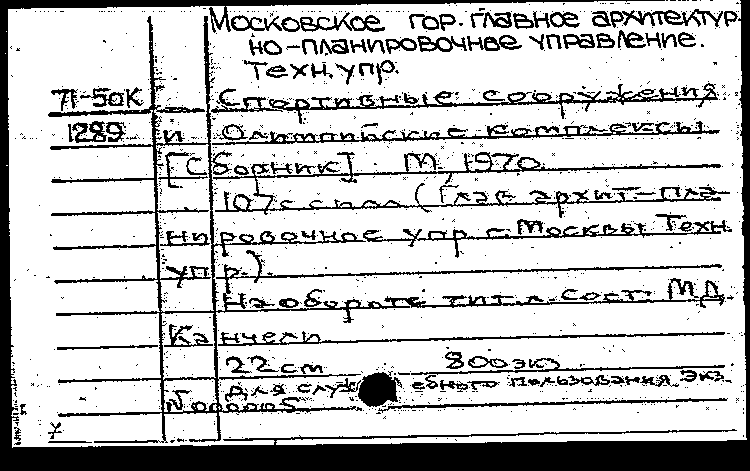 Московское гор. главное архитектур-
но-планировочное управление.
Техн. упр.
71-50К Спортивные сооружения
1289 и Олимпийские комплексы
[Сборник] М, 1970.
107 с с илл (Глав архит-пла-
нировочное упр г. Москвы Техн.
упр.).
На обороте тит. л. сост: М.Д.
Канчели
22 cm 800 экз
Для служебного пользования Экз.
N 000005